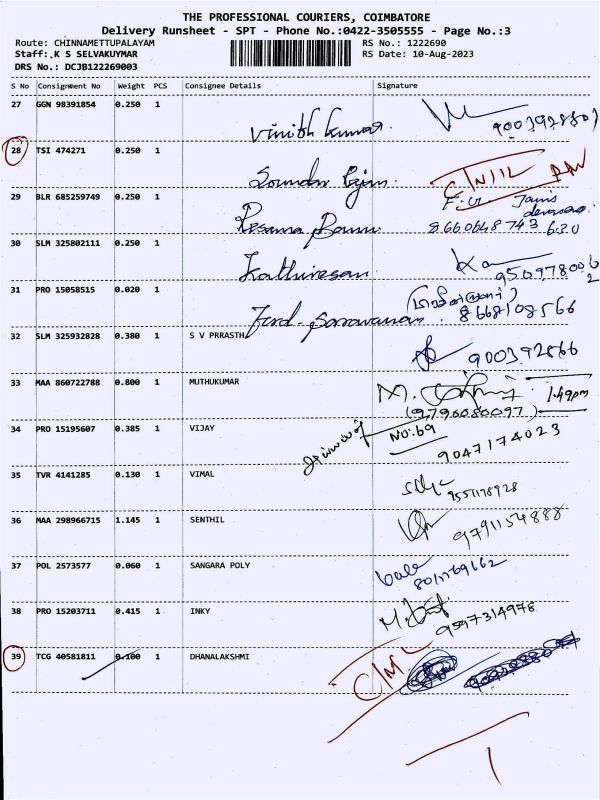 THE PROFESSIONAL COURIERS, COIMBATORE
Delivery Runsheet - SPT - Phone No.:0422-3505555 - Page No.:3
Route: CHINNAMETTUPALAYAM RS No.: 1222690
Staff: K S SELVAKUYMAR RS Date: 10-Aug-2023
DRS No.: DCJB122269003
S No Consignment No Weight PCS Consignee Details Signature
27 GGN 98391854 0.250 1
Vinith Kumar.
28 TSI 474271 0.250 1
29 BLR 685259749 0.250 1
8660648743
30 SLM 325802111 0.250 1
Kathiresan
31 PRO 15058515 0.020 1
8668108566
32 SLM 325932828 0.380 1 S V PRRASTH
900392866
33 MAA 860722788 0.800 1 MUTHUKUMAR
1.49pm
(9790080097)
34 PRO 15195607 0.385 1 VIJAY
NO:69
9047174023
35 TVR 4141285 0.130 1 VIMAL
9551178928
36 MAA 298966715 1.145 1 SENTHIL
9791154888
37 POL 2573577 0.060 1 SANGARA POLY
8011769162
38 PRO 15203711 0.415 1 INKY
9597314978
39 TCG 40581811 0.100 1 DHANALAKSHMI